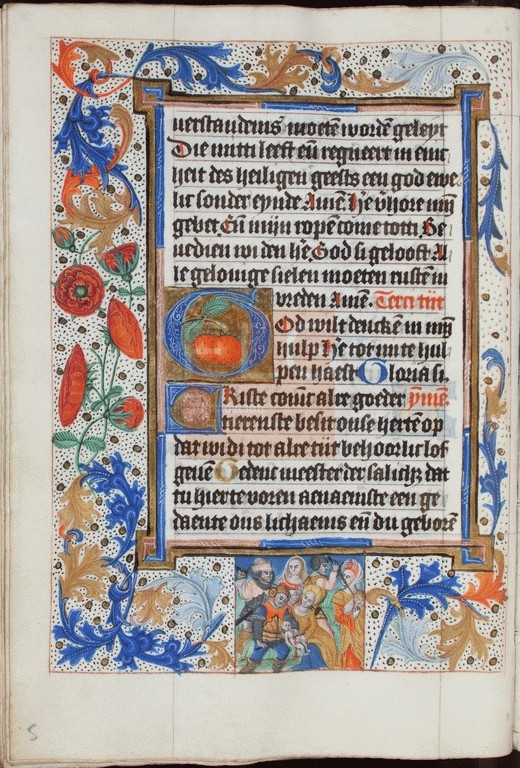 verstandenis moetē wordē geleyt
Die mitti leeft eñ regneert in enic
heit des heiligen geests een god ewe
lic sonder eynde Amē. He v̄hore mijn
gebet Eñ mijn ropē come totti Be
nedien wi den hēe God si gelooft Al
le gelovige sielen moeten rustē in
vreden Amē. Terci tijt
God wilt denckē in mijn
hulp He tot mi te hul
pen haest Gloria si.
Kriste comt alre goeder ymē.
tierenste besit onse hertē op
dat wi di tot alre tijt behoorlic lof
gevē Gedenc meester der salichz dat
tu hier te voren aenaemste een ge
daente ons lichaems eñ du geborē
5